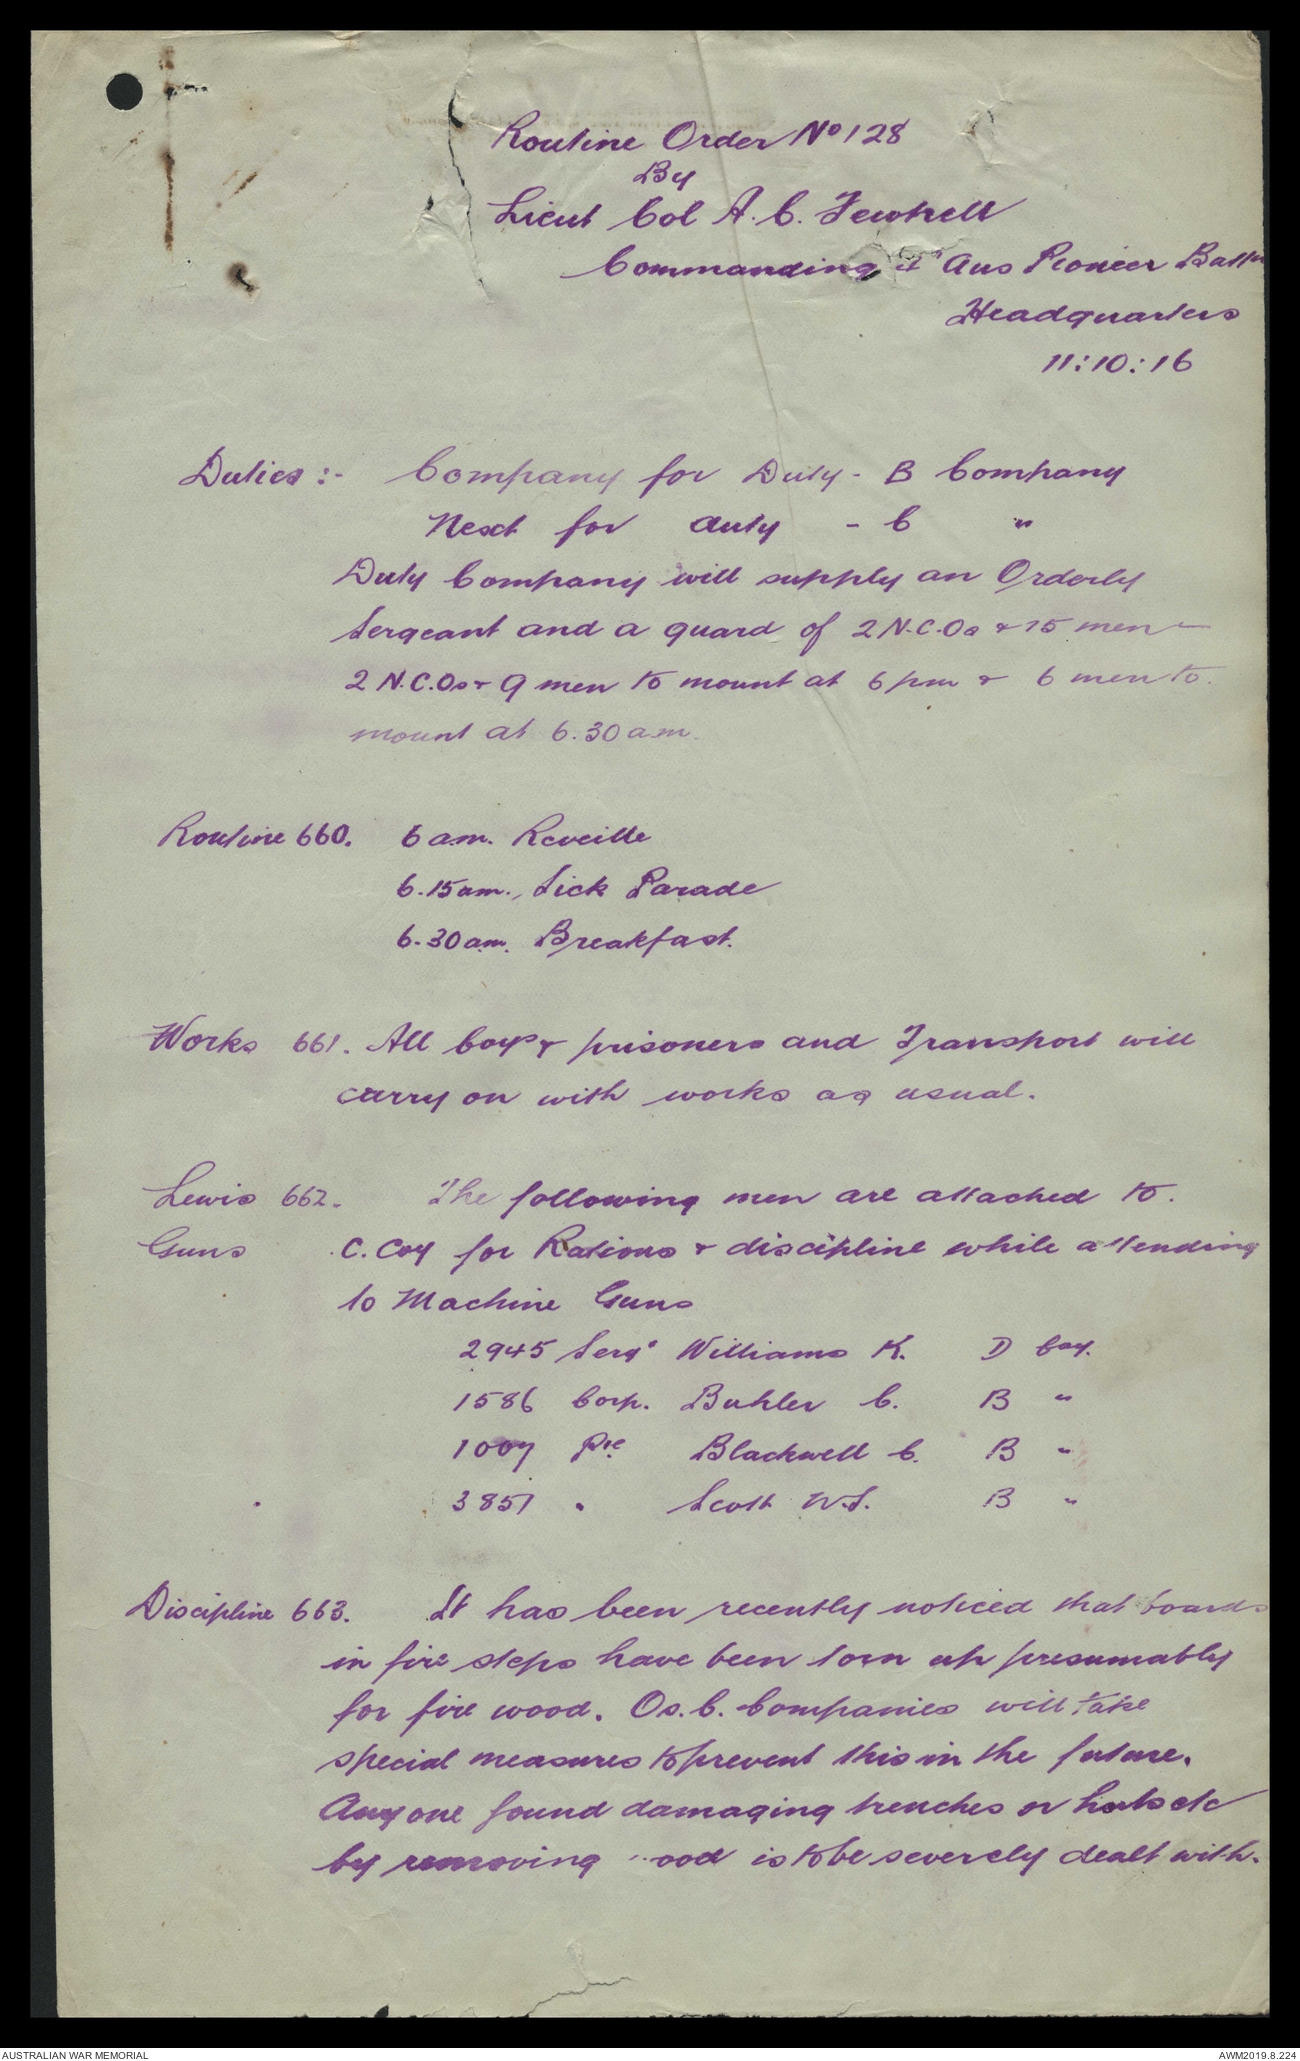 Routine Order No 128
By
Lieut Col A. C. Fewtrell
Commanding 4th Aus Pioneer Battn
Headquarters
11:10:16
Duties :- Company for Duty - B Company
Next for duty - C "
Duty Company will supply an Orderly
Sergeant and a guard of 2 N.C.Os & 15 men -
2 N.C.Os & 9 men to mount at 6 pm & 6 men to
mount at 6.30 a.m.
Routine 660. 6 a.m. Reveille
6.15 am., Sick Parade
6.30 a.m. Breakfast.
Works 661. All Coys & prisoners and Transport will
carry on with works as usual.
Lewis 662. The following men are attached to
Guns C. Coy for Rations & discipline while attending
to Machine Guns
2945 Sergt Williams K. D Coy.
1586 Corp. Buhler C. B "
1007 Pte Blackwell C. B "
3851 " Scott W.S. B "
Discipline 663. It has been recently noticed that boards
in fire steps have been torn up presumably
for fire wood. Os.C. Companies will take
special measures to prevent this in the future.
Anyone found damaging trenches or huts etc
by removing ood is to be severely dealt with.
AUSTRALIAN WAR MEMORIAL
AWM2019.8.224